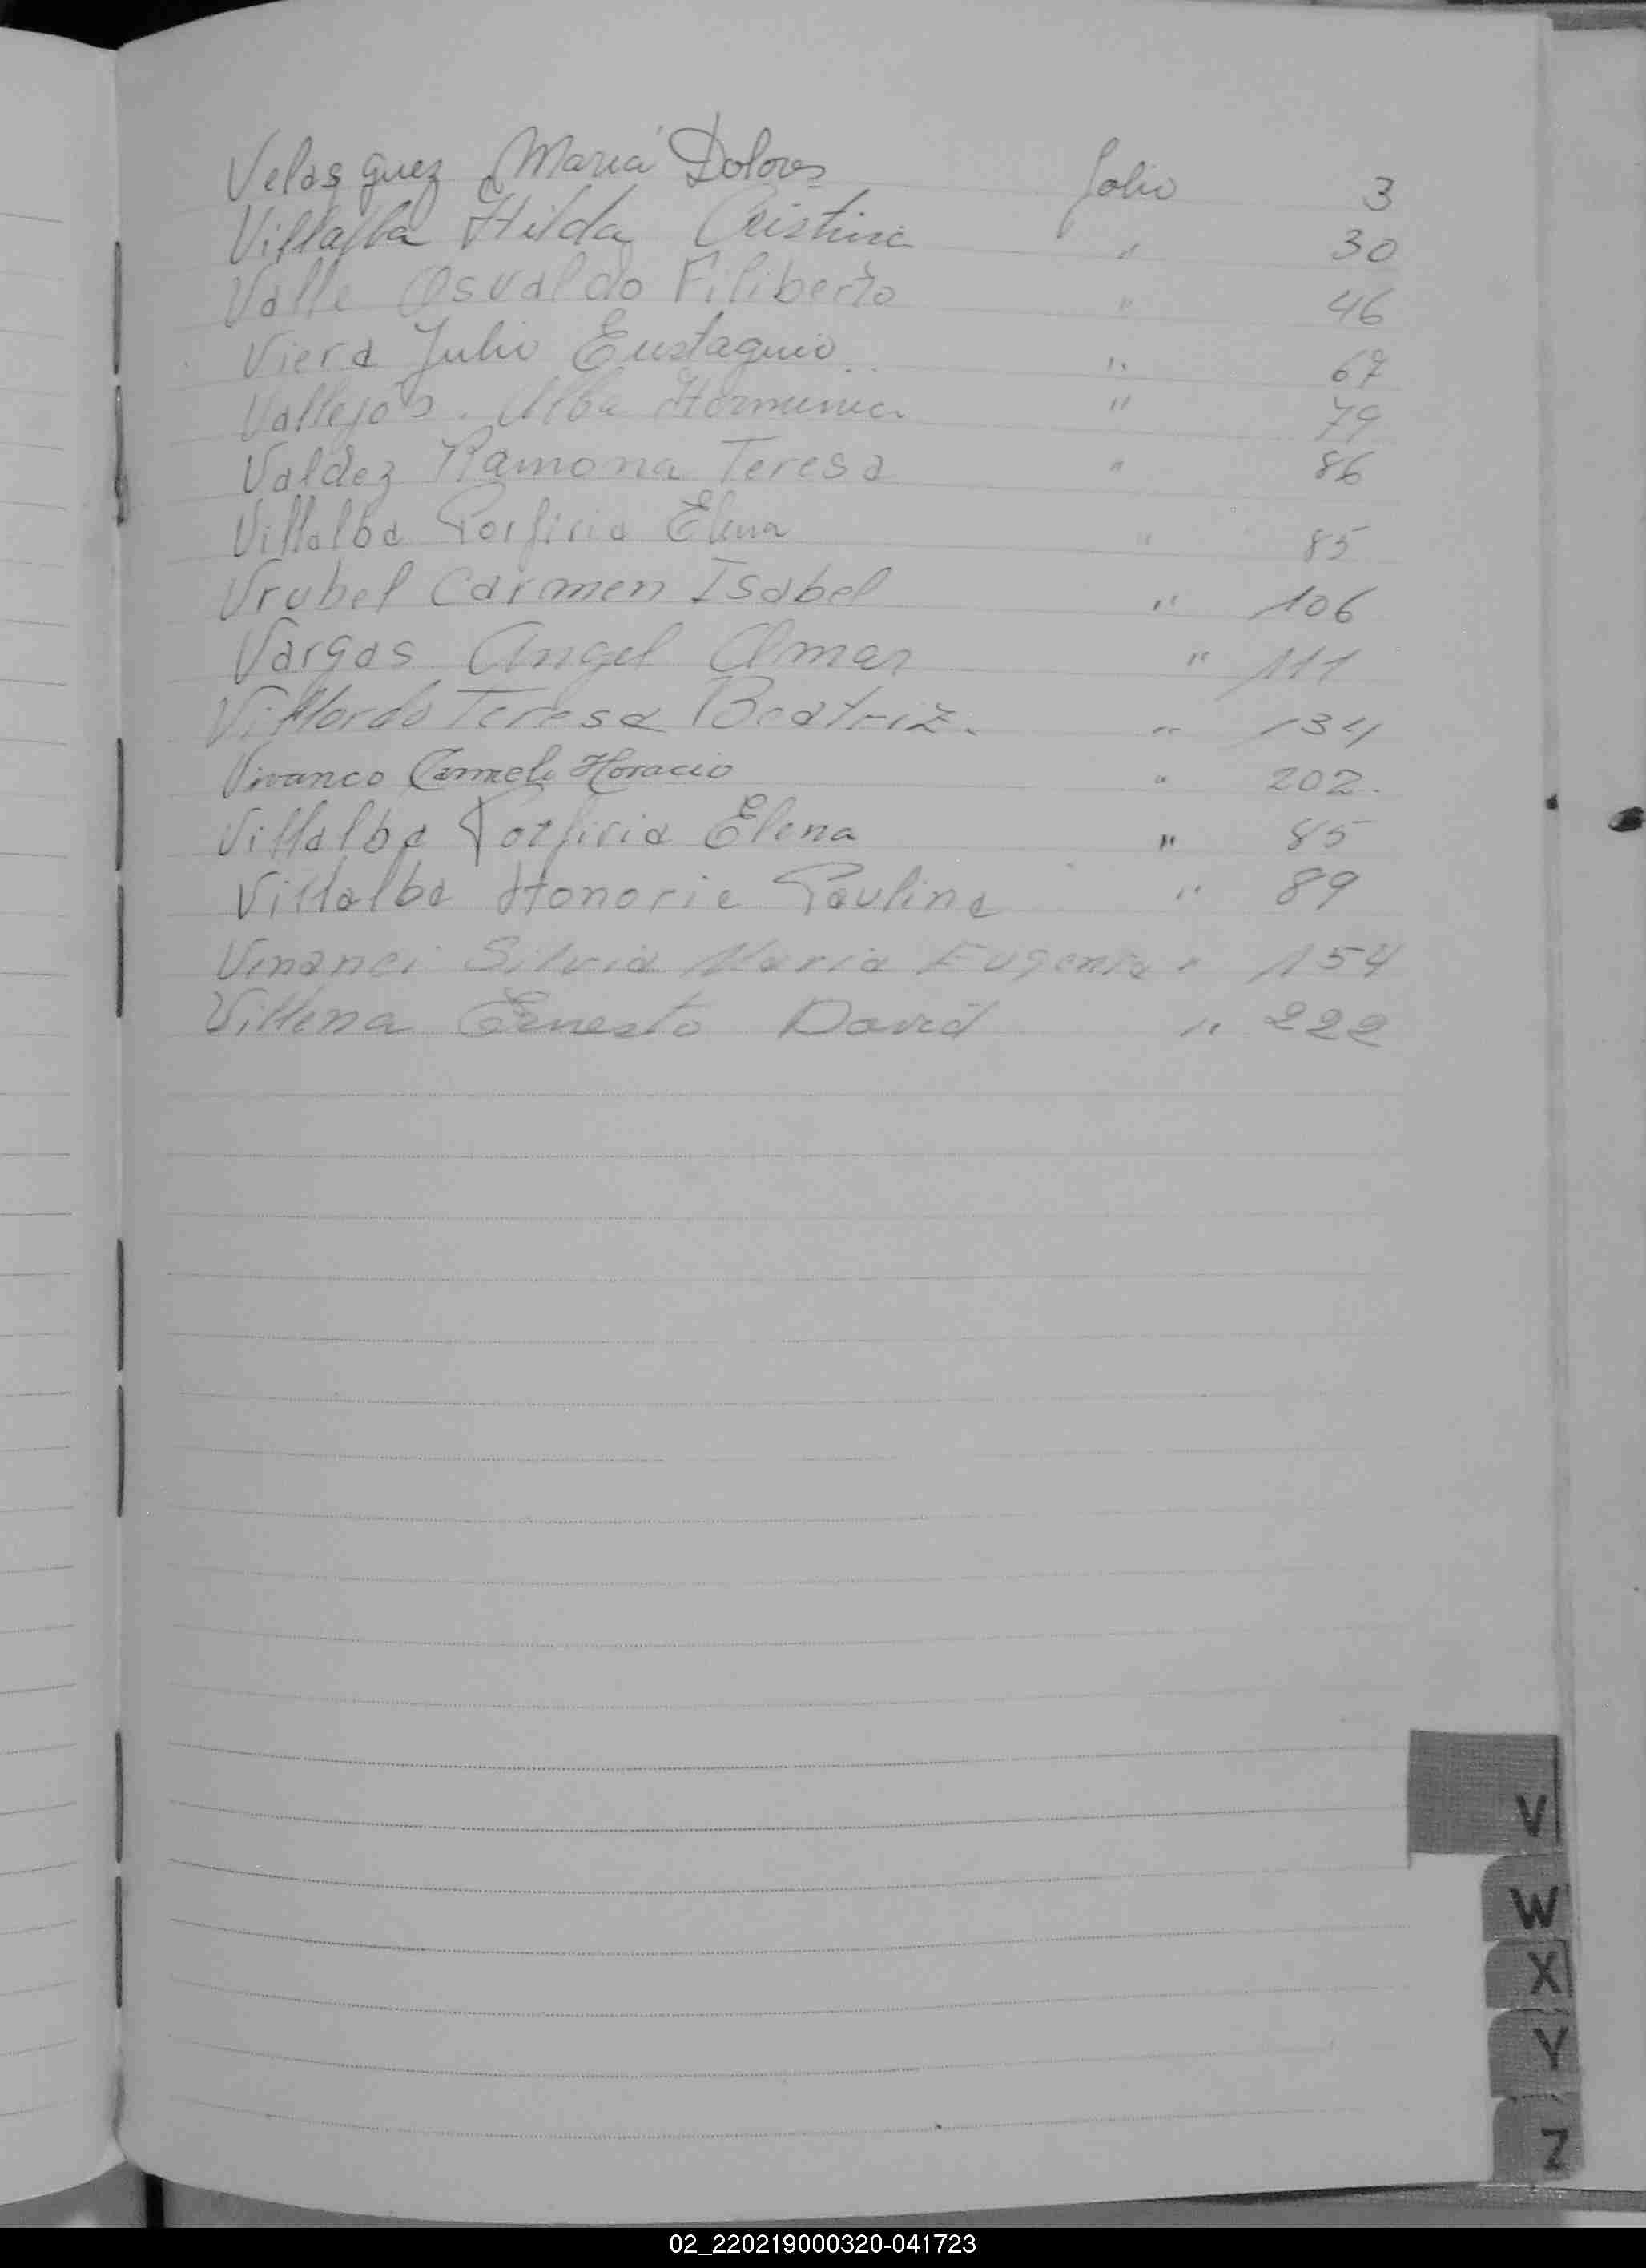 Velasquez María Dolores folio 3
Villalba Hilda Cristina " 30
Valle Osvaldo Filiberto " 46
Viera Julio Eustaquio " 67
Vallejos. Alba Herminia " 79
Valdez Ramona Teresa " 86
Villalba Porfiria Elena " 85
Vrubel Carmen Isabel " 106
Vargas Angel Omar " 111
Villordo Teresa Beatriz. " 134
Vivanco Carmelo Horacio " 202.
Villalba Porfiria Elena " 85
Villalba Honoria Paulina " 89
Silvia Maria Eugenia " 154
Villena Ernesto David " 222
V
W
X
Y
Z
02_220219000320-041723